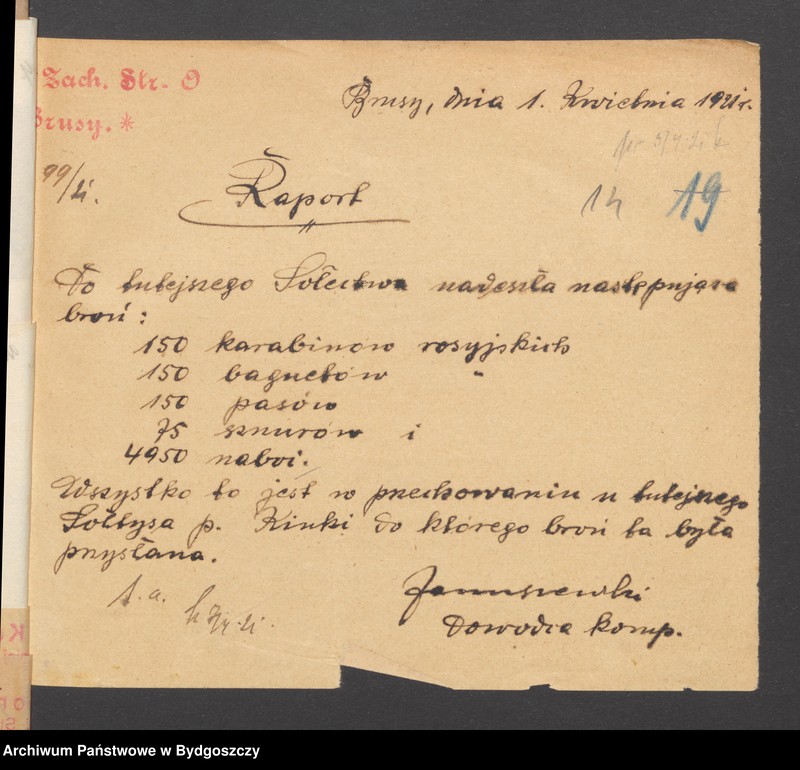 Zach. Str. O
Brusy. *
Brusy, dnia 1. Kwietnia 1921 r.
99/21.
Raport
14 19
Do tutejszego Sołectwa nadeszła następująca
broń:
150 karabinów rosyjskich
150 bagnetów "
150 pasów
75 sznurów i
4950 naboi.
Wszystko to jest w przechowaniu u tutejszego
Sołtysa p. Kinki do którego broń ta była
przysłana.
Januszewski
Dowódca komp.
t. a.
Archiwum Państwowe w Bydgoszczy